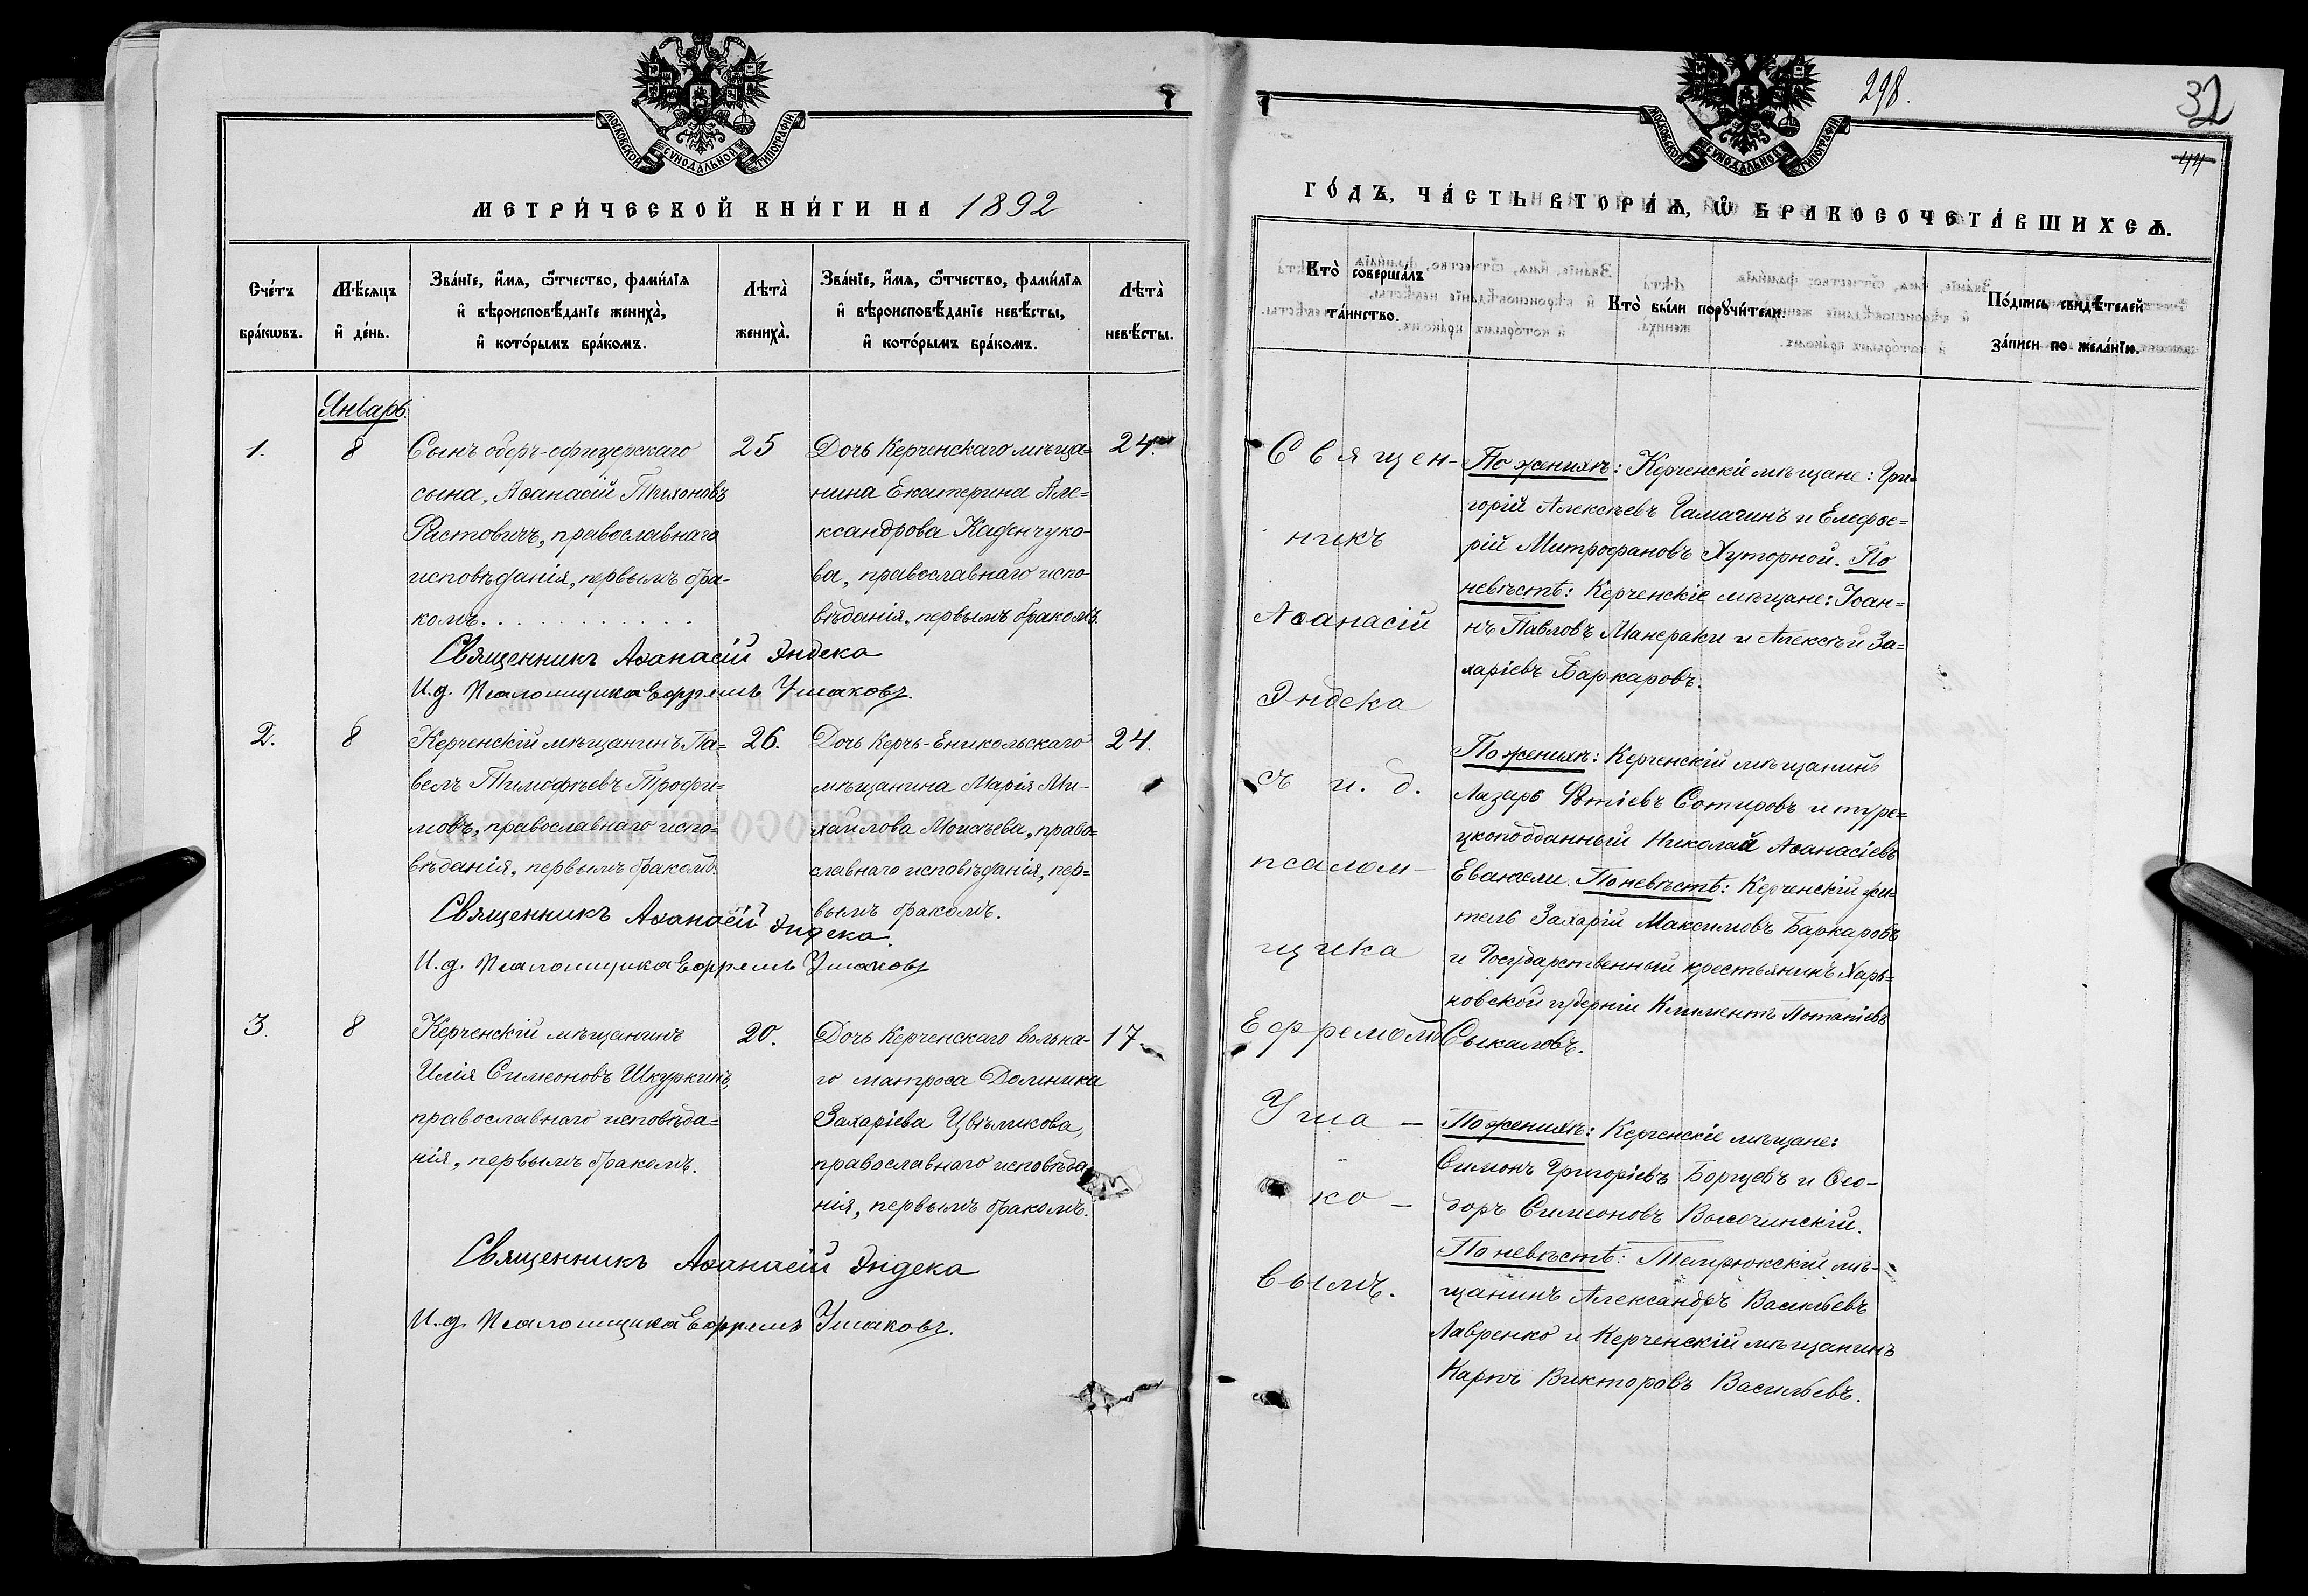 МОСКОВСКОЙ СѴНОДАЛЬНОЙ ТИПОГРАФІИ
МЕТРИ́ЧЕСКОЙ КНИ́ГИ НА 1892
Сче́тъ бра́кѡвъ.
Мѣ́сяцъ и҆ де́нь.
Зва́нїе, и҆́мя, ѻ҆́тчество, фами́лїя и҆ вѣроисповѣ́данїе жениха̀, и҆ кото́рымъ бра́комъ.
Лѣта̀ жениха̀.
Зва́нїе, и҆́мя, ѻ҆́тчество, фами́лїя и҆ вѣроисповѣ́данїе невѣ́сты, и҆ кото́рымъ бра́комъ.
Лѣта̀ невѣ́сты.
Январь.
1.
8
Сынъ оберъ-офицерскаго
сына, Аѳанасій Тихоновъ
Растовичъ, православнаго
исповѣданія, первымъ бра-
комъ.
25
Дочь Керченскаго мѣща=
нина Екатерина Але=
ксандрова Каденчуко-
ва, православнаго испо
вѣданія, первымъ бракомъ.
24.
Священникъ Аѳанасій Эндека
И.д. Псаломщика Ефремъ Ушаковъ.
2.
8
Керченскій мѣщанинъ Па=
велъ Тимофѣевъ Трофи=
мовъ, православнаго испо=
вѣданія, первымъ бракомъ.
26.
Дочь Керчь-Еникольскаго
мѣщанина Марія Ми-
хаилова Моисѣева, право=
славнаго исповѣданія, пер=
вымъ бракомъ.
24.
Священникъ Аѳанасій Эндека.
И.д. Псаломщика Ефремъ Ушаковъ
3.
8
Керченскій мѣщанинъ
Илія Симеоновъ Шкуркинъ,
православнаго исповѣда=
нія, первымъ бракомъ.
20.
Дочь Керченскаго вольна-
го матроса Домника
Захаріева Цвѣликова,
православнаго исповѣда
нія, первымъ бракомъ.
17.
Священникъ Аѳанасій Эндека
И.д. Псаломщика Ефремъ Ушаковъ.
298.
32
44
МОСКОВСКОЙ СѴНОДАЛЬНОЙ ТИПОГРАФІИ
ГО́ДЪ, ЧА́СТЬ ВТОРА́Я, Ѽ БРАКОСОЧЕТА́ВШИХСЯ.
Кто̀ соверша́лъ та́инство.
Кто̀ бы́ли поручи́тели.
По́дпись свидѣ́телей за́писи по жела́нїю.
Священ-
никъ
Аѳанасій
Эндека
съ и. д.
псалом-
щика
Ефремомъ
Уша-
ко-
вымъ.
По женихѣ: Керченскіе мѣщане: Гри=
горій Алексѣевъ Гамагинъ и Елефѳе=
рій Митрофановъ Хуторной. По
невѣстѣ: Керченскіе мѣщане: Іоан=
нъ Павловъ Манераки и Алексѣй За=
харіевъ Баркаровъ.
По женихѣ: Керченскій мѣщанинъ
Лазарь Фотіевъ Сотировъ и туре=
цкоподданный Николай Аѳанасіевъ
Евангели. По невѣстѣ: Керченскій жи=
тель Захарій Максимовъ Баркаровъ
и Государственный крестьянинъ Харь=
ковской губерніи Климентъ Потапіевъ
Сыкаловъ.
По женихѣ: Керченскіе мѣщане:
Симонъ Григоріевъ Борщевъ и Ѳео-
доръ Симеоновъ Высочинскій.
По невѣстѣ: Темрюкскій мѣ-
щанинъ Александръ Васильевъ
Лавренко и Керченскій мѣщанинъ
Карпъ Викторовъ Васильевъ.